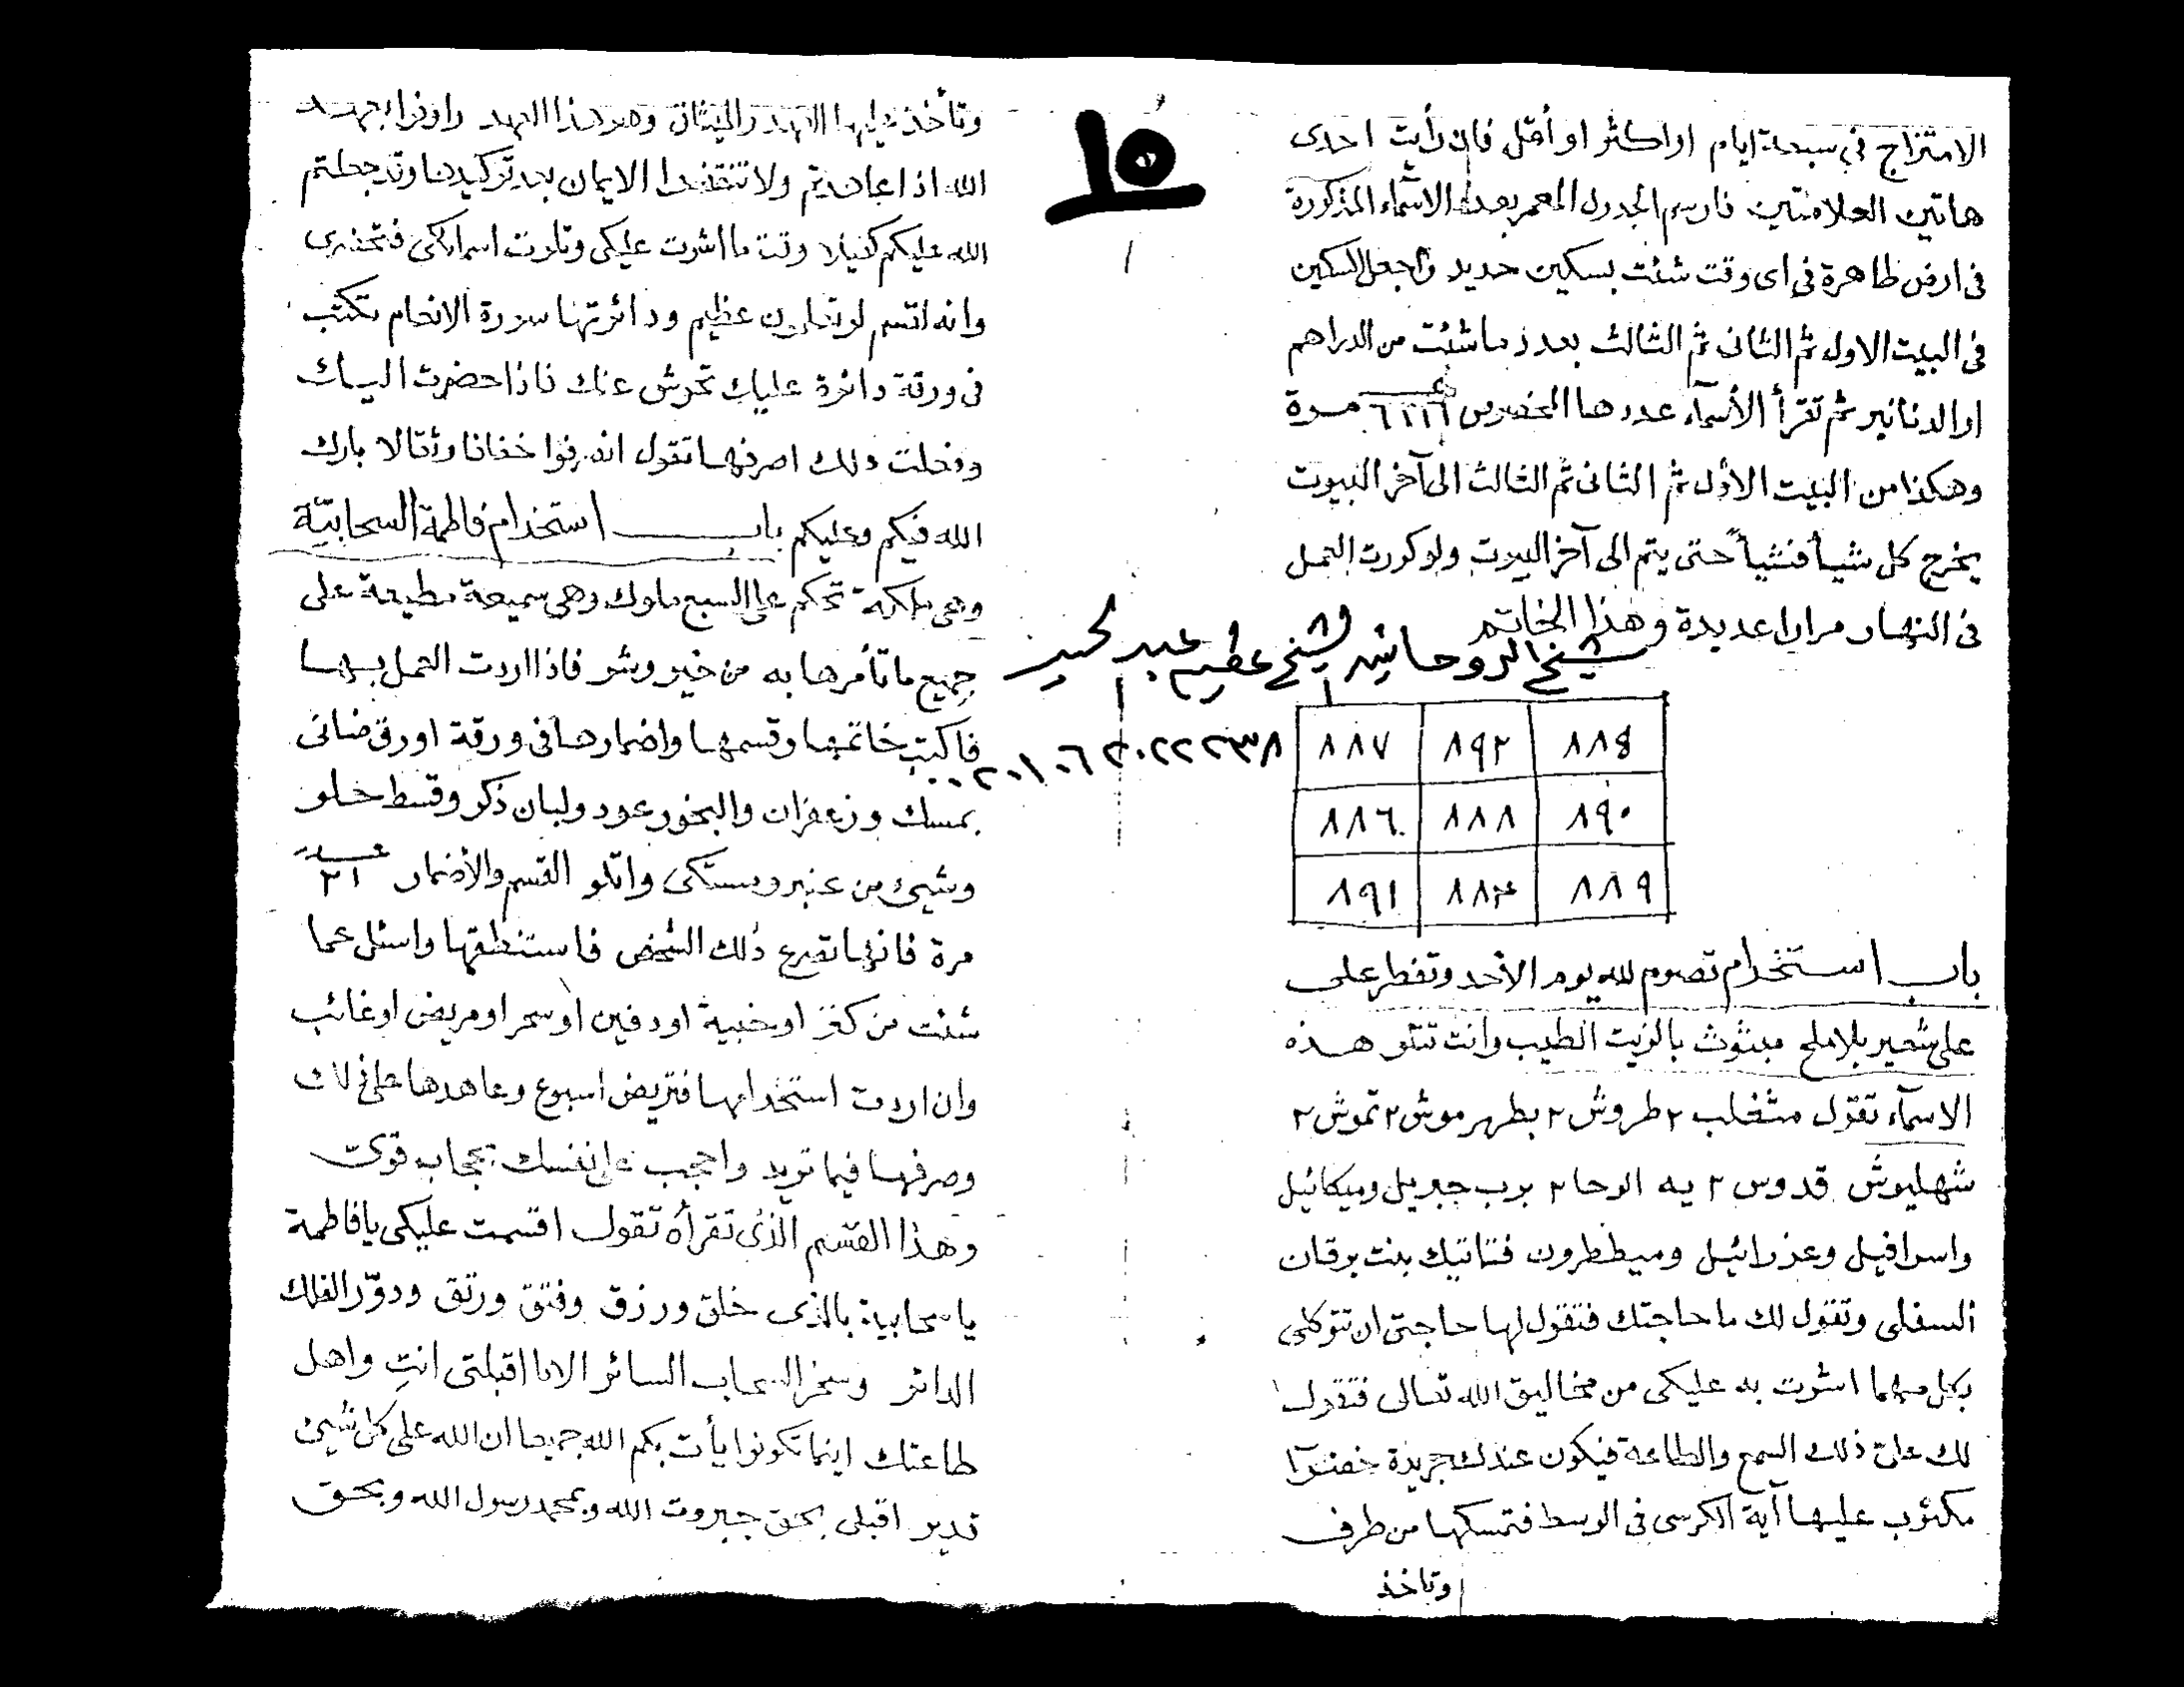 الامتزاج في سبعة ايام او اكثر او أقل فان رأيت احدى
هاتين العلامتين فارسم الجدول المعمر بعدد الاسماء المذكورة
فى ارض طاهرة فى اى وقت شئت بسكين حديد واجعل السكين
فى البيت الاول ثم الثانى ثم الثالث بعدد ما شئت من الدراهم
او الدنانير ثم تقرأ الأسمآء عددها المخصوص مرة
وهكذا من البيت الأول ثم الثانى ثم الثالث الى آخر البيوت
يخرج كل شيأ فشيأ حتى يتم الى آخر البيوت ولو كررت العمل
فى النهار مرارا عديدة وهذا الخاتم
شيخ الروحانين الشيخ عظيم عبد
٠٠٢٠١٠٦٣٠٢٢٢٣٨
٨٨٧ ٨٩٢ ٨٨٥
٨٨٦ ٨٨٨ ٨٩٠
٨٩١ ٨٨٤ ٨٨٩
باب استخدام تصوم لله يوم الأحد وتفطر على
على شعير بلا ملح مبثوث بالزيت الطيب وانت تتلو هذه
الاسمآء تقول ٢ طروش ٢ بطهر موش ٢ تموش ٢
شهليوش قدوس ٢ يه الوحا ٢ برب جبريل وميكائيل
واسرافيل وعزرائيل وميططرون فتاتيك بنت برقان
السفلى وتقول لك ما حاجتك فتقول لها حاجتى ان تتوكلى
بكل مهما اشرت به عليكى من مخاليق الله تعالى فتقول
لك على ذلك السمع والطاعة فيكون عندك جريدة خضرآ
مكتوب عليها آية الكرسى فى الوسط فتمسكها من طرف
وتاخذ
١٥
وتأخذ عليها العهد والميثاق وهو هذا العهد واوفوا بعهد
الله اذا عاهدتم ولا تنقضوا الايمان بعد توكيدها وقد جعلتم
الله عليكم كفيلا وقت ما اشرت عليكى وتلوت اسمائكى فتحضرى
وانه لقسم لو تعلمون عظيم ودائرتها سورة الانعام تكتب
فى ورقة دائرة عليك تحوش عنك فاذا حضرت اليك
وفعلت ذلك اصرفها تقول انفروا خفافا وثقالا بارك
الله فيكم وعليكم باب استخدام فاطمة السحابيّة
وهى ملكة تحكم على السبع ملوك وهى سميعة مطيعة على
جميع ما تأمرها به من خير وشر فاذا اردت العمل بها
فاكتب خاتمها وقسمها واضمارها فى ورقة او رق ضانى
بمسك وزعفران والبخور عود ولبان ذكر وقسط حلو
وشيئ من عنبر ومستكى واتلو القسم والأضمار عدد ٢١
مرة فانها تصرع ذلك الشخص فاستنطقها واسئل عما
شئت من كنز او خبية او دفين او سحر او مريض او غائب
وان اردت استخدامها فتريض اسبوع وعاهدها على ذلك
وصرفها فيما تريد واحجب على نفسك بحجاب قوى
وهذا القسم الذى تقرأه تقول اقسمت عليكى يا فاطمة
يا سحابية بالذى خلق ورزق وفتق ورتق ودوّر الفلك
الدائر وسخر السحاب السائر الا ما اقبلتى انتِ واهل
طاعتك اينما تكونوا يأت بكم الله جميعا ان الله على كل شيئ
قدير اقبلى بحق جبروت الله وبمحمد رسول الله وبحق